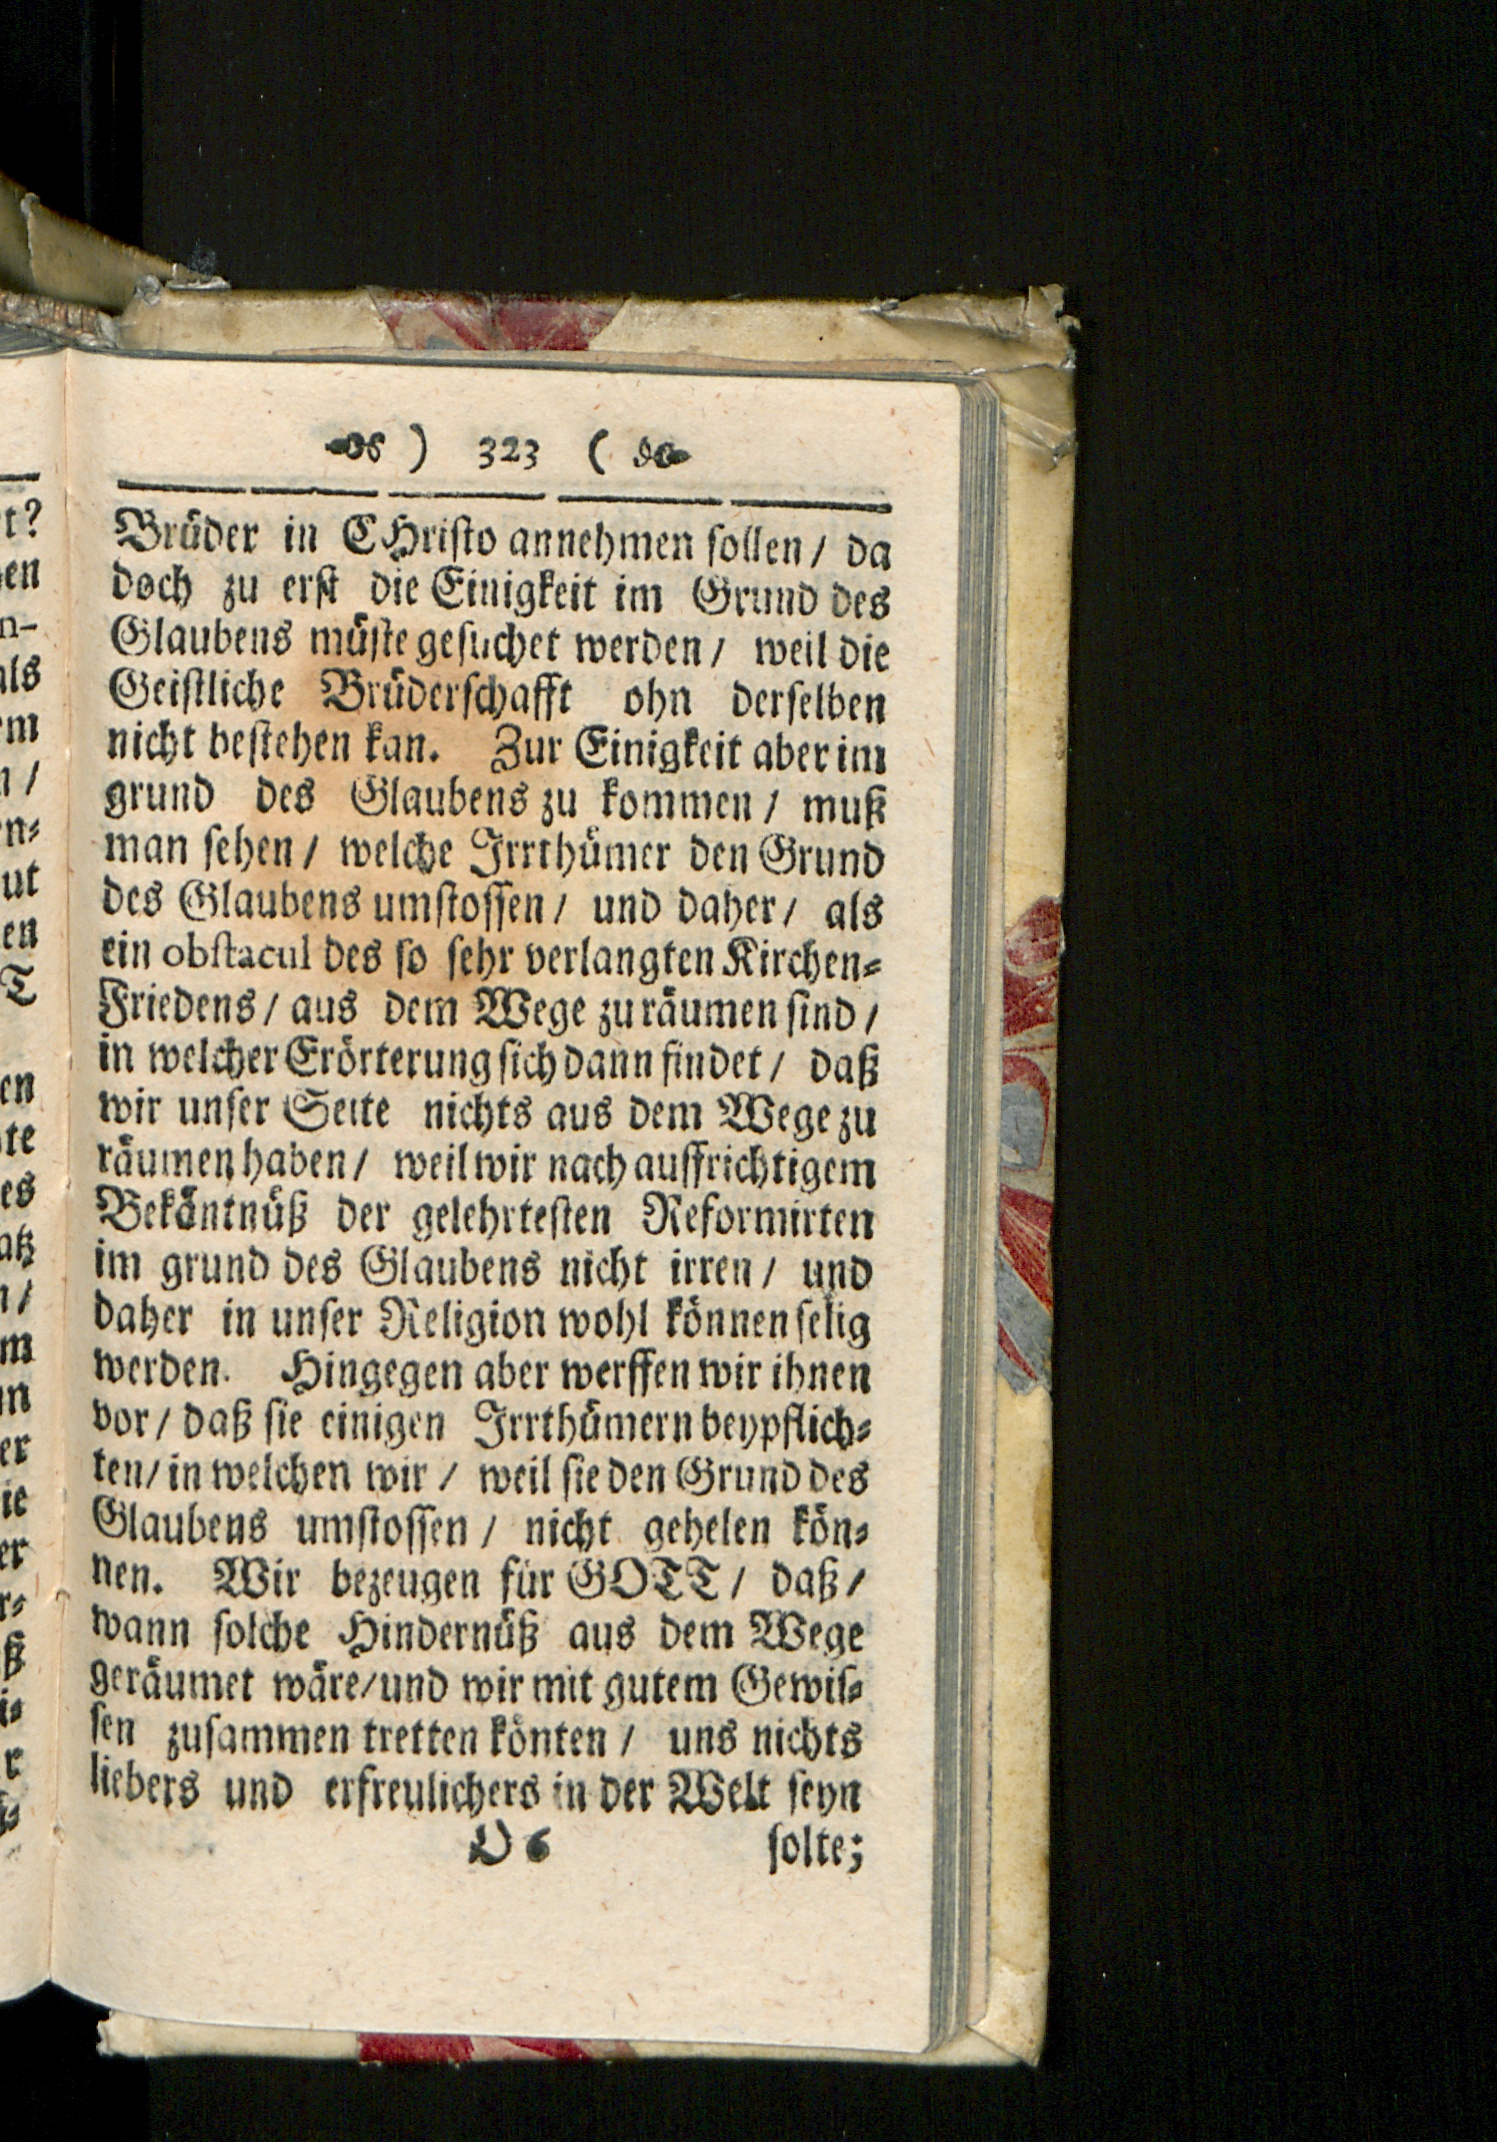 ) 323 (
Brüder in CHristo annehmen sollen / da
doch zu erst die Einigkeit im Grund des
Glaubens müste gesuchet werden / weil die
Geistliche Brüderschafft ohn derselben
nicht bestehen kan. Zur Einigkeit aber im
grund des Glaubens zu kommen / muß
man sehen / welche Irrthümer den Grund
des Glaubens umstossen / und daher / als
ein obstacul des so sehr verlangten Kirchen-
Friedens / aus dem Wege zu räumen sind /
in welcher Erörterung sich dann findet / daß
wir unser Seite nichts aus dem Wege zu
räumen haben / weil wir nach auffrichtigem
Bekäntnüß der gelehrtesten Reformirten
im grund des Glaubens nicht irren / und
daher in unser Religion wohl können selig
werden. Hingegen aber werffen wir ihnen
vor / daß sie einigen Irrthümern beypflich-
ten / in welchen wir / weil sie den Grund des
Glaubens umstossen / nicht gehelen kön-
nen. Wir bezeugen für GOTT / daß /
wann solche Hindernüß aus dem Wege
geräumet wäre / und wir mit gutem Gewis-
sen zusammen tretten könten / uns nichts
liebers und erfreulichers in der Welt seyn
O 6 solte;